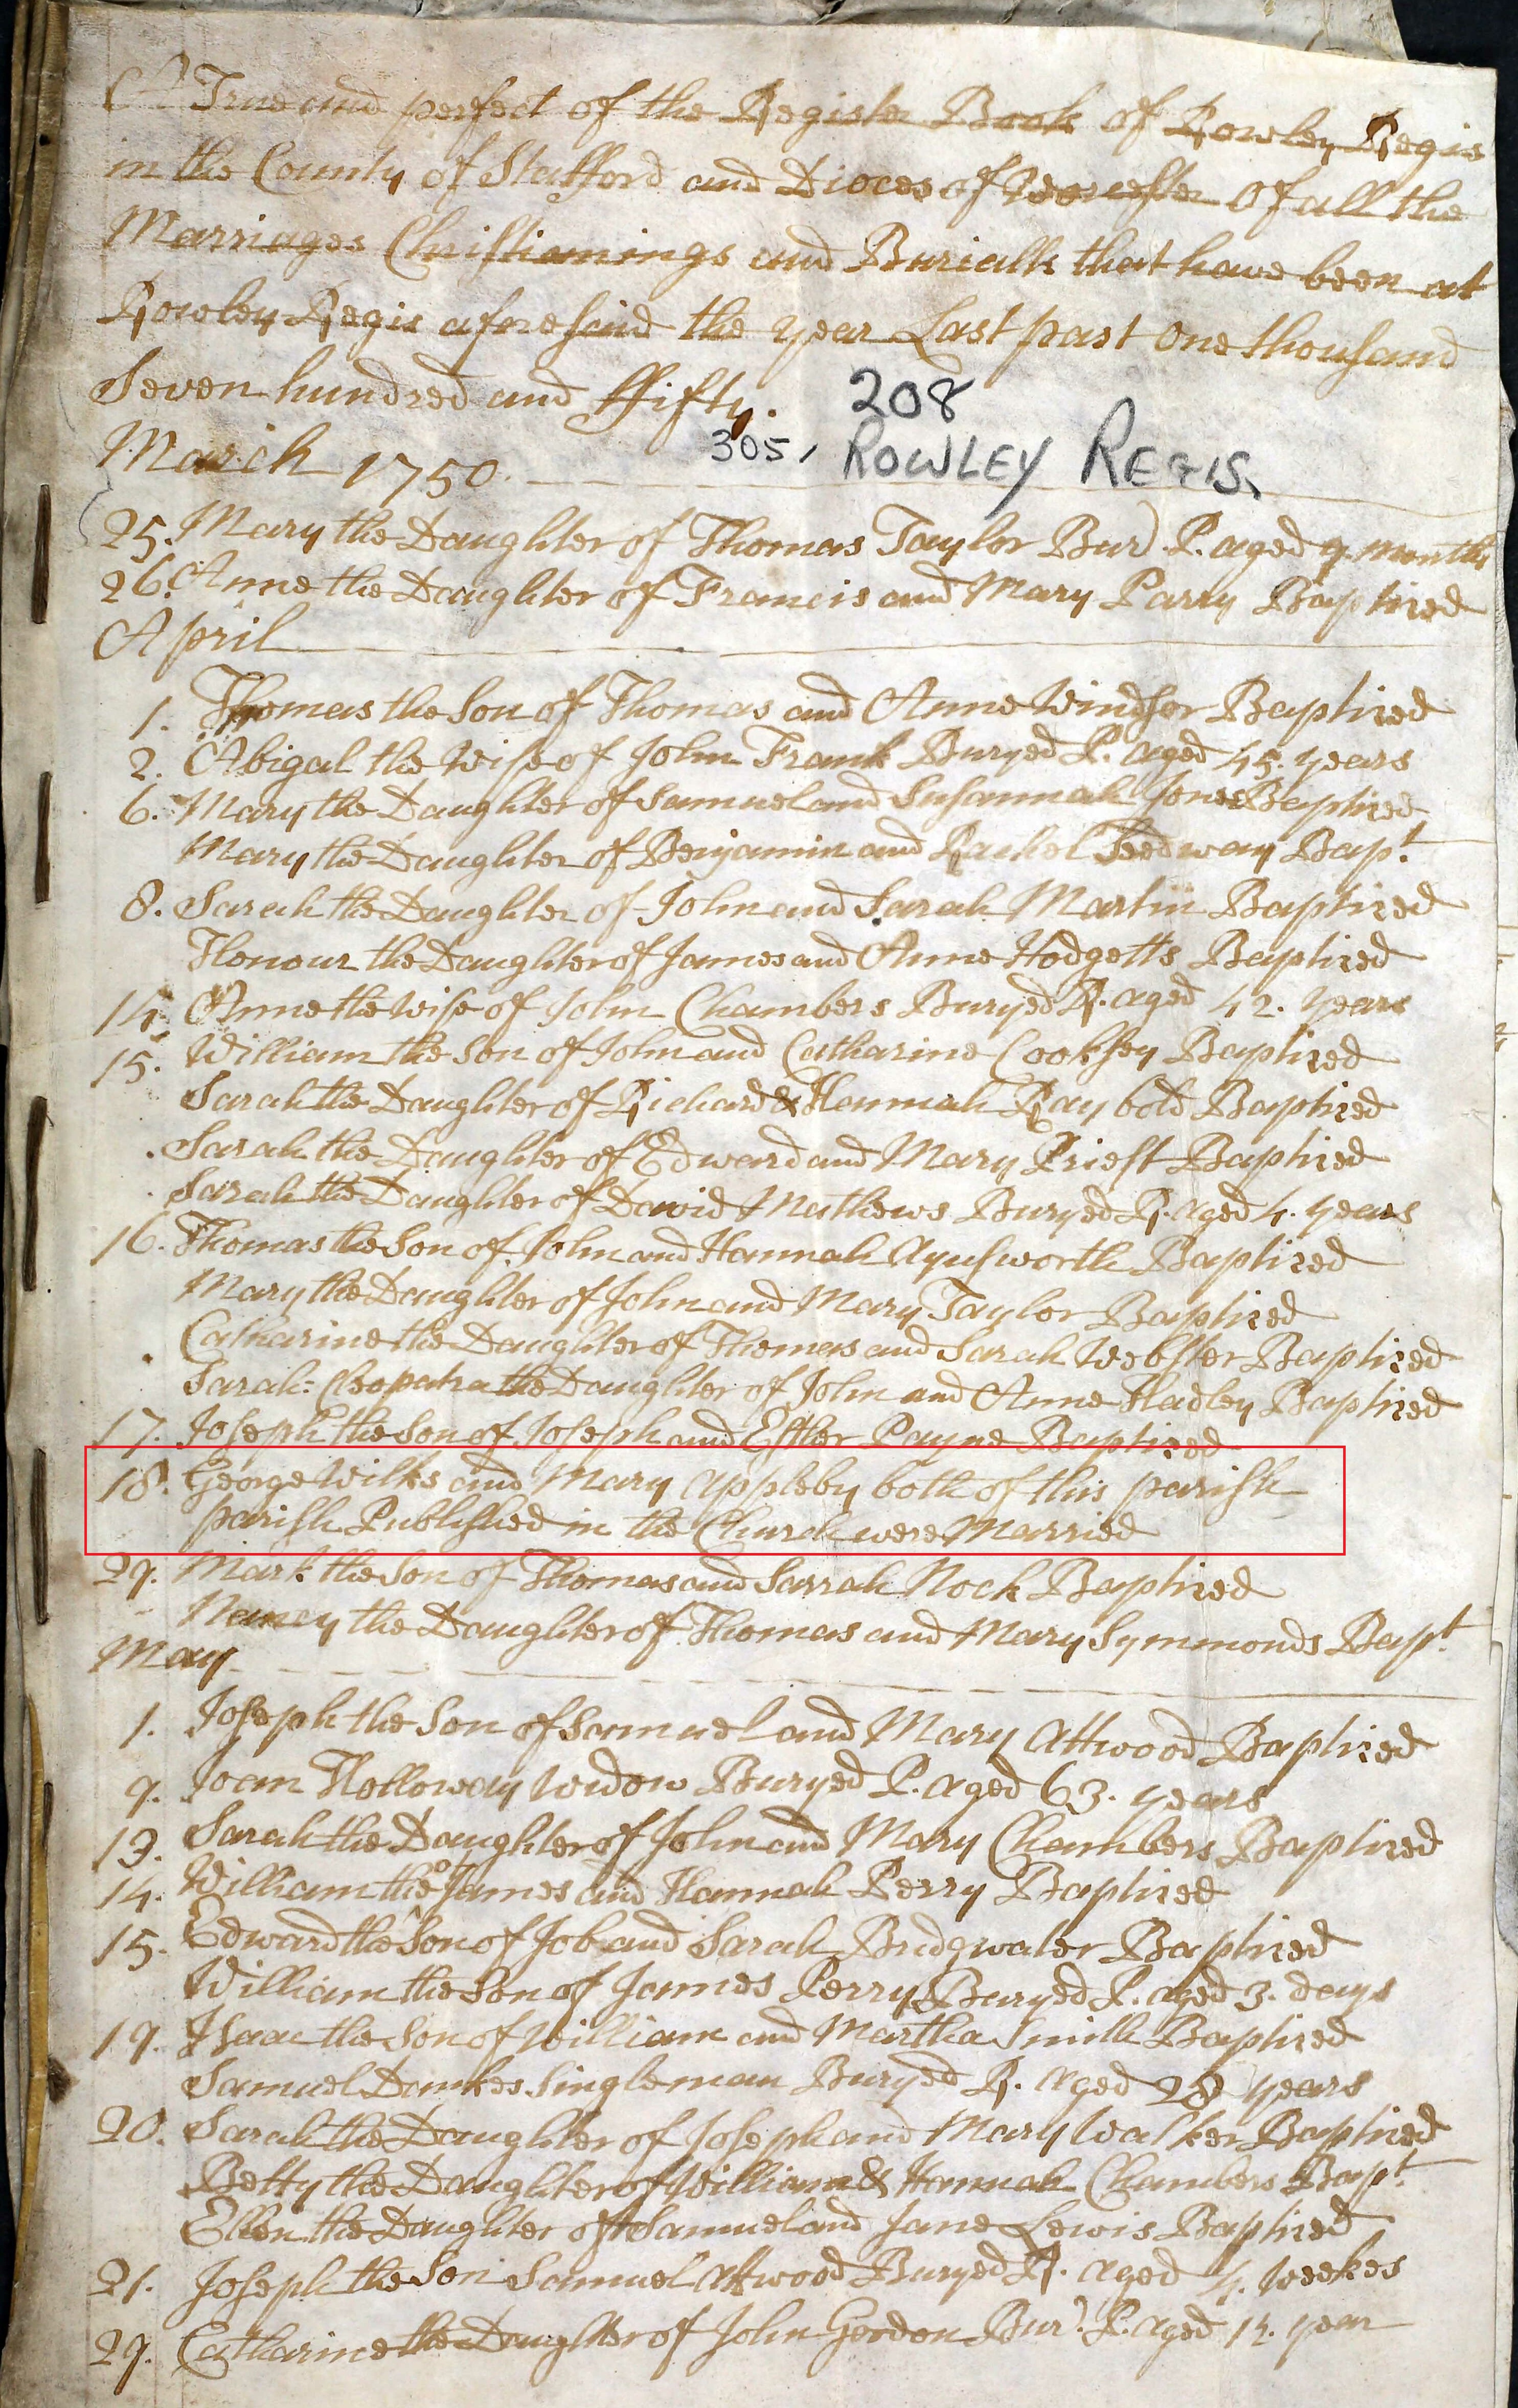 A True and perfect of the Register Book of Rowley Regis
in the County of Stafford and Dioces of Worcester Of all the
Marriages Christianings and Burialls that have been at
Rowley Regis aforesaid the year Last past One thousand
Seven hundred and ffifty.
208
305, ROWLEY REGIS.
March 1750.
25. Mary the Daughter of Thomas Taylor Bur'd. P. aged 9. months
26. Anne the Daughter of Francis and Mary Parry Baptized
April
1. Thomas the Son of Thomas and Anne Windsor Baptized
2. Abigal the Wife of John Frank Buryed P. aged 45. years
6. Mary the Daughter of Samuel and Susannah Jones Baptized
Mary the Daughter of Benjamin and Rachel Tedway Bapt.
8. Sarah the Daughter of John and Sarah Martin Baptized
Honour the Daughter of James and Anne Hodgetts Baptized
14. Anne the Wife of John Chambers Buryed R. aged 42. years
15. William the Son of John and Catharine Cooksey Baptized
Sarah the Daughter of Richard & Hannah Raybold Baptized
Sarah the Daughter of Edward and Mary Priest Baptized
Sarah the Daughter of David Mathews Buryed R. aged 4. years
16. Thomas the Son of John and Hannah Aynsworth Baptized
Mary the Daughter of John and Mary Taylor Baptized
Catharine the Daughter of Thomas and Sarah Webster Baptized
Sarah: Cleopatra the Daughter of John and Anne Hadley Baptized
17. Joseph the Son of Joseph and Esther Payne Baptized
18. George Wilks and Mary Appleby both of this parish
parish Published in the Church were Married
29. Mark the Son of Thomas and Sarrah Nock Baptized
Nancy the Daughter of Thomas and Mary Symmonds Bapt.
May
1. Joseph the Son of Samuel and Mary Attwood Baptized
9. Joan Holloway Widow Buryed P. aged 63. years
13. Sarah the Daughter of John and Mary Chambers Baptized
14. William the James and Hannah Perry Baptized
15. Edward the Son of Job and Sarah Bridgwater Baptized
William the Son of James Perry Buryed P. aged 3. days
19. Isaac the Son of William and Martha Smith Baptized
Samuel Dankes Singleman Buryed R. aged 28 years
20. Sarah the Daughter of Joseph and Mary Walker Baptized
Betty the Daughter of William & Hannah Chambers Bapt.
Ellen the Daughter of Samuel and Jane Lewis Baptized
21. Joseph the Son Samuel Attwood Buryed R. aged 4. Weekes
29. Catharine the Daughter of John Gordon Bur'd. P. aged year